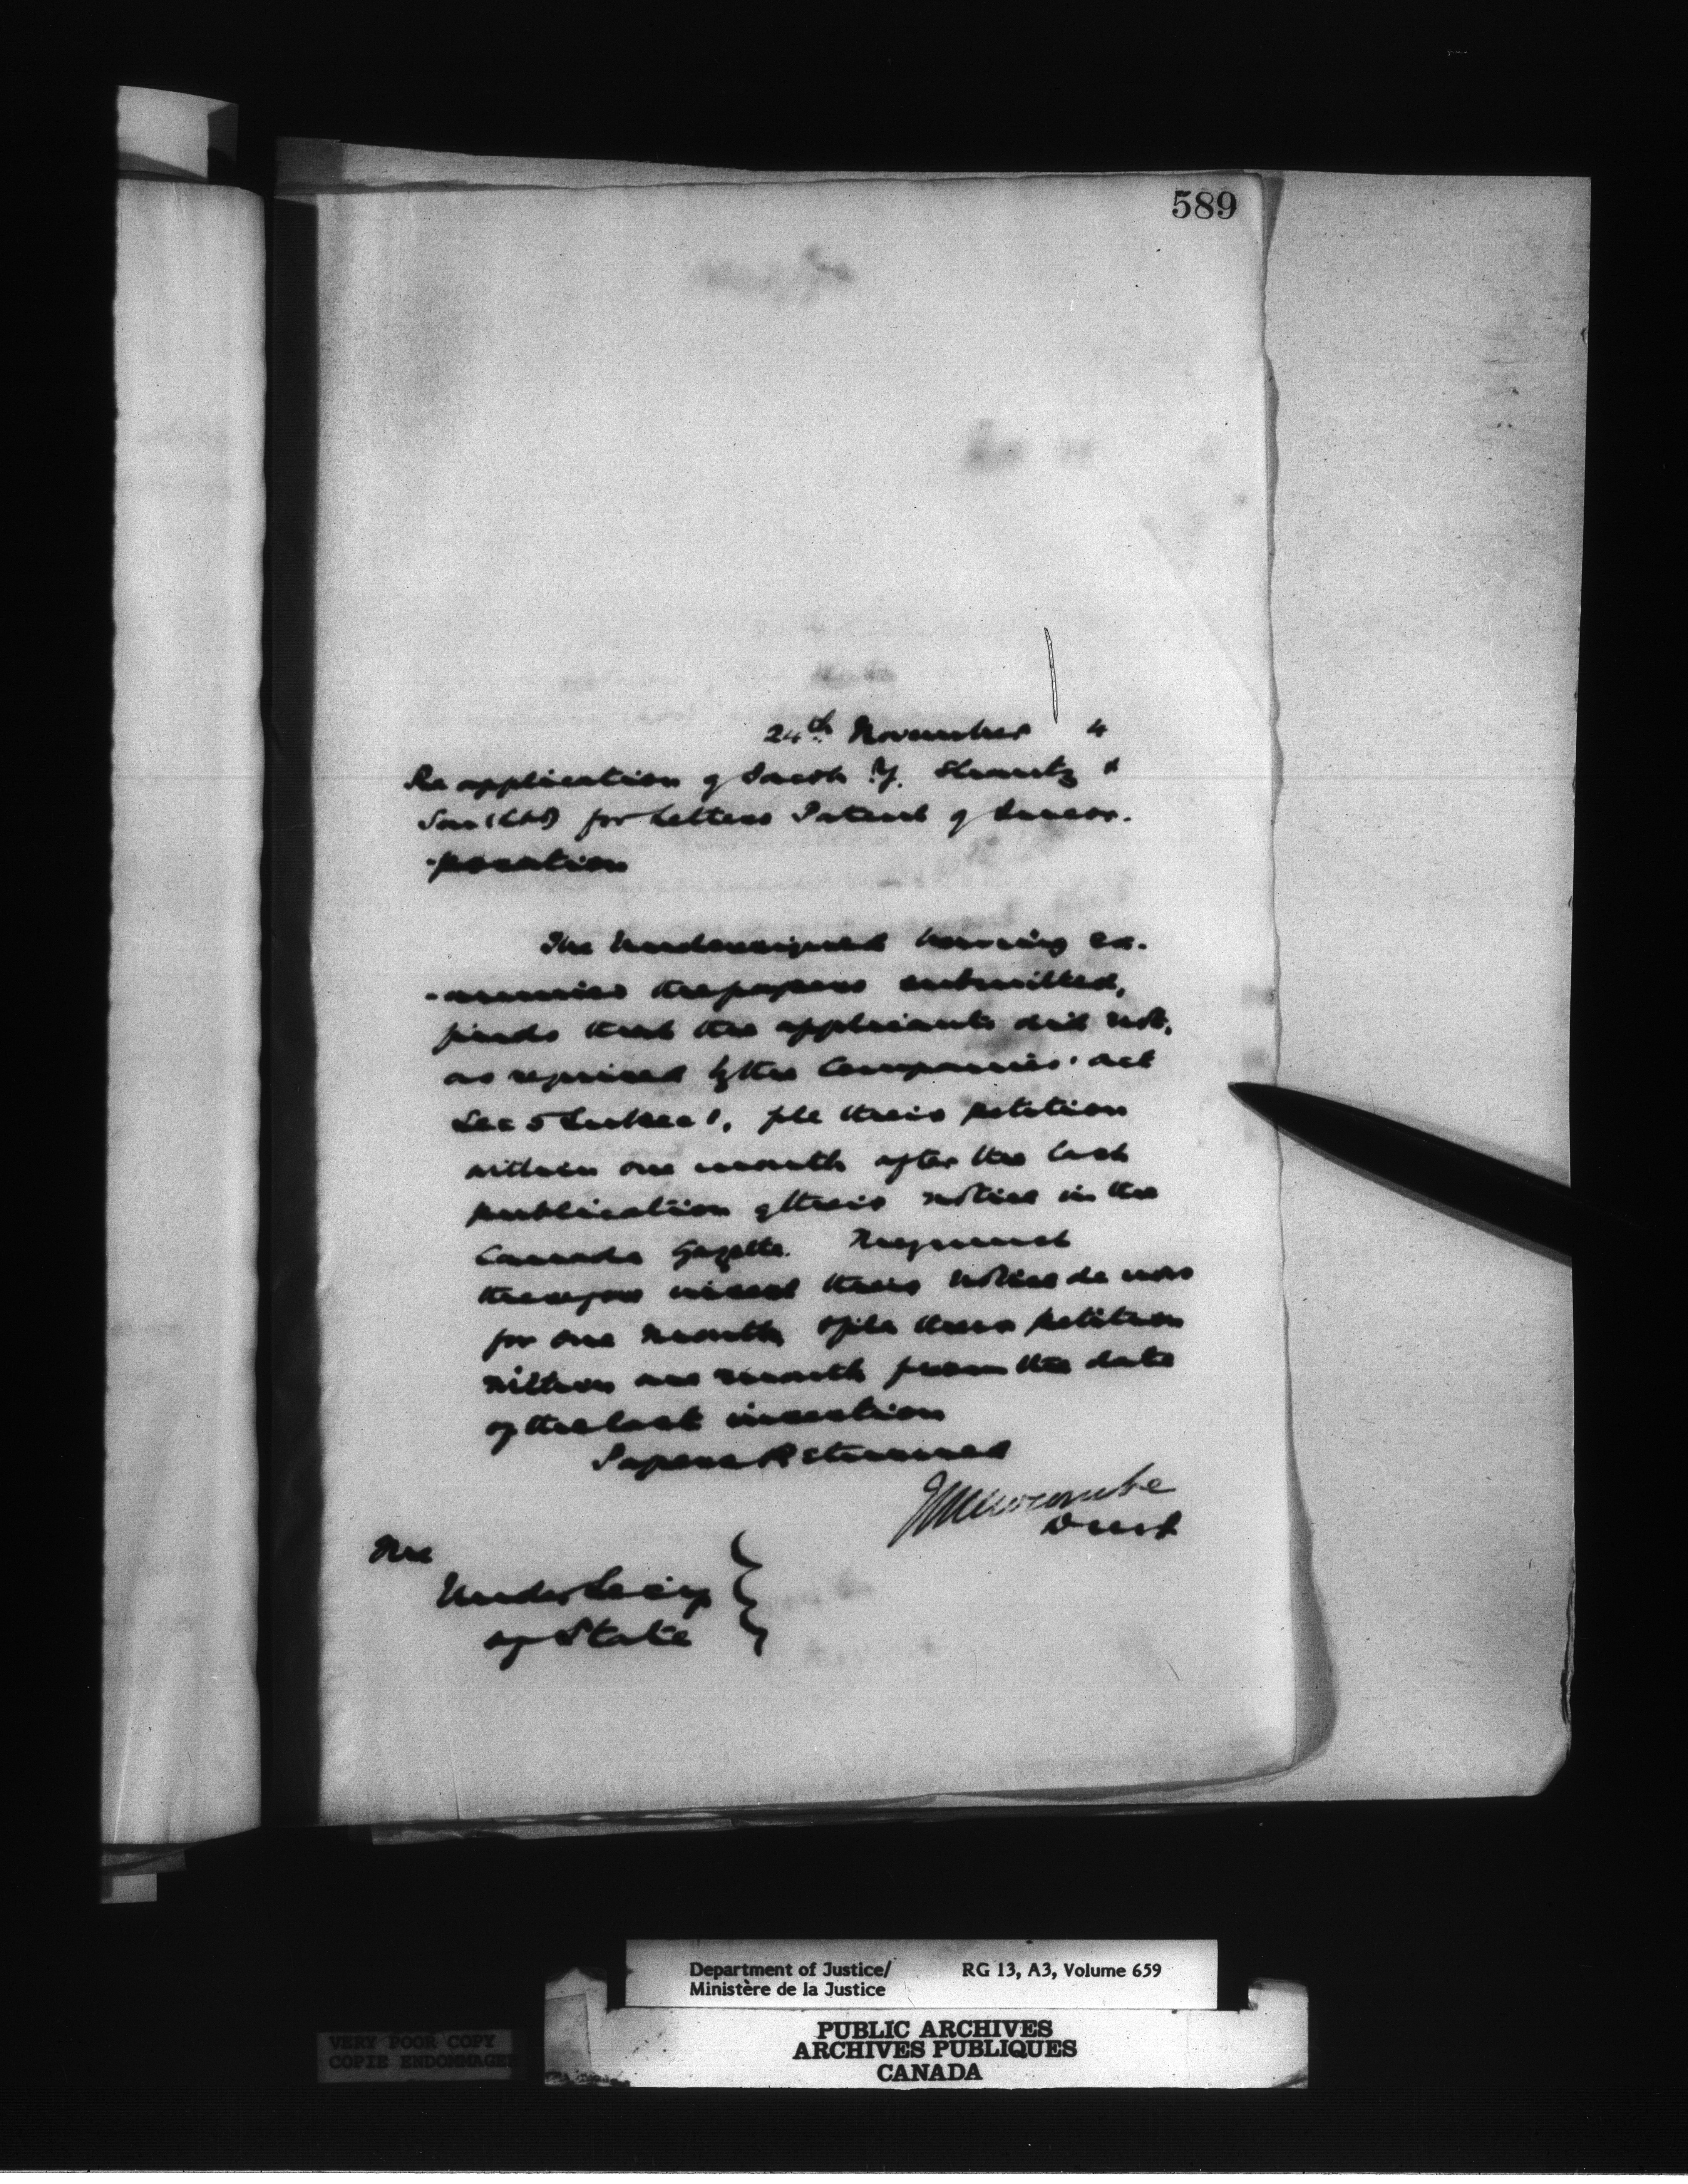 589
24th November 4
Re application of Jacob Y. Shantz &
Son (Ltd) for Letters Patent of Incor-
-poration
The Undersigned having ex-
-amined the papers submitted,
finds that the applicants did not,
as required by the Companies' Act
Sec 5 Subsec 1, file their petition
within one month after the last
publication of their notice in the
Canada Gazette. They must
therefore insert their notice de novo
for one month & file their petition
within one month from the date
of the last insertion
Papers Returned
Newcombe
DMJ
The
Under Secy
of State
Department of Justice/ RG 13, A3, Volume 659
Ministère de la Justice
PUBLIC ARCHIVES
ARCHIVES PUBLIQUES
CANADA
VERY POOR COPY
COPIE ENDOMMAGEE